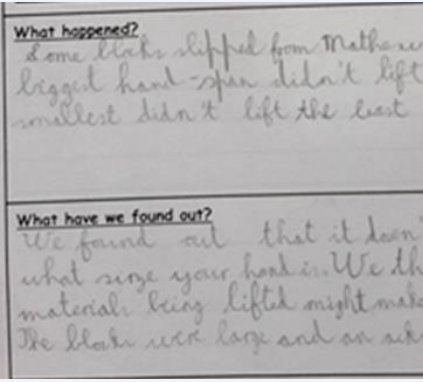 What happened?
Some blocks slipped from Mathew
biggest hand-span didn't lift
smallest didn't lift the least
What have we found out?
We found out that it doesn'
what size your hand is. We th
materials being lifted might make
The blocks were large and an